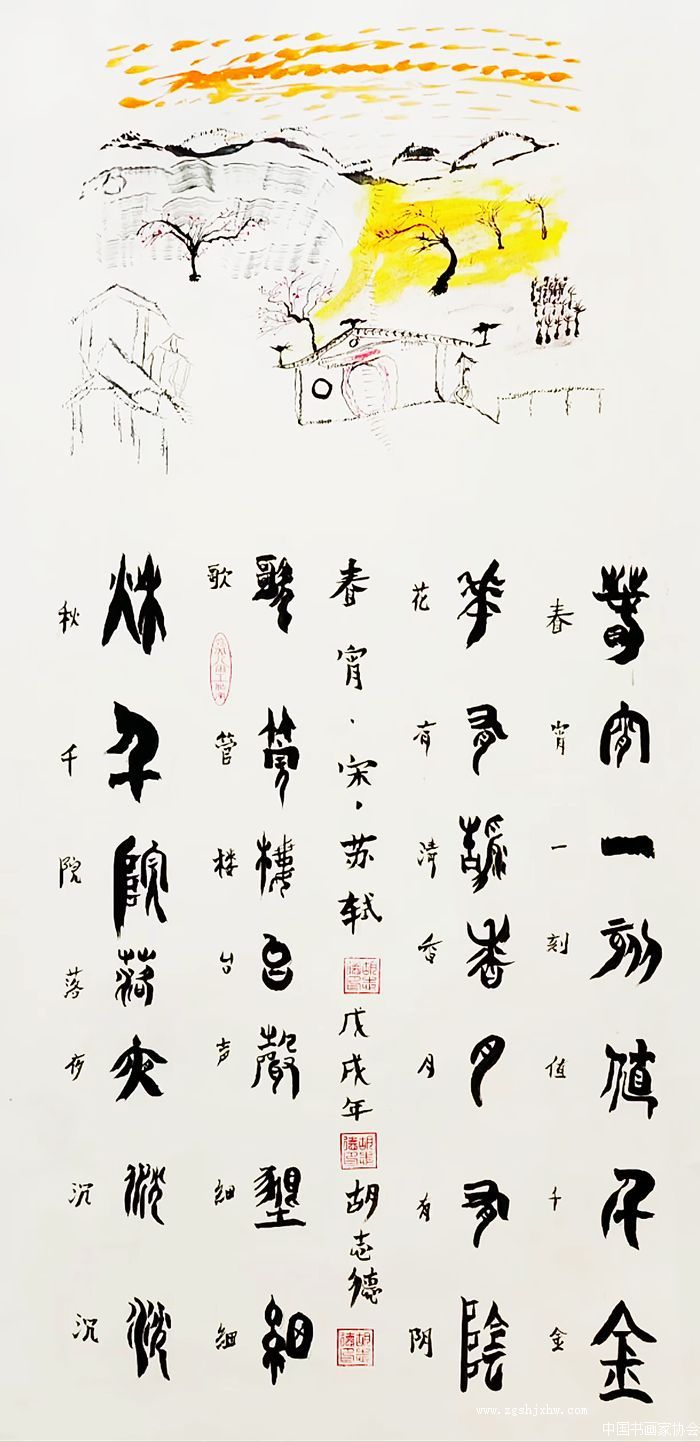 春宵一刻值千金
春宵一刻值千金
華有香月有陰
花有清香月有阴
春宵、宋、苏轼
戊戌年
胡志德
歌管樓台聲細
歌管楼台声细细
秋千院落夜沉沉
秋千院落夜沉沉
www.zgshjxhw.com
中国书画家协会